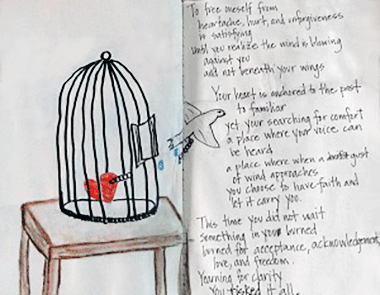 To free oneself from
heartache, hurt, and unforgiveness
is satisfying
until you realize the wind is blowing
against you
and not beneath your wings
Your heart is anchored to the past
to familiar
yet your searching for comfort
a place where your voice can
be heard
a place where when a gust
of wind approaches
you choose to have faith and
let it carry you.
This time you did not wait
Something in you burned
burned for acceptance, acknowledgement,
love, and freedom.
Yearning for clarity
You risked it all.